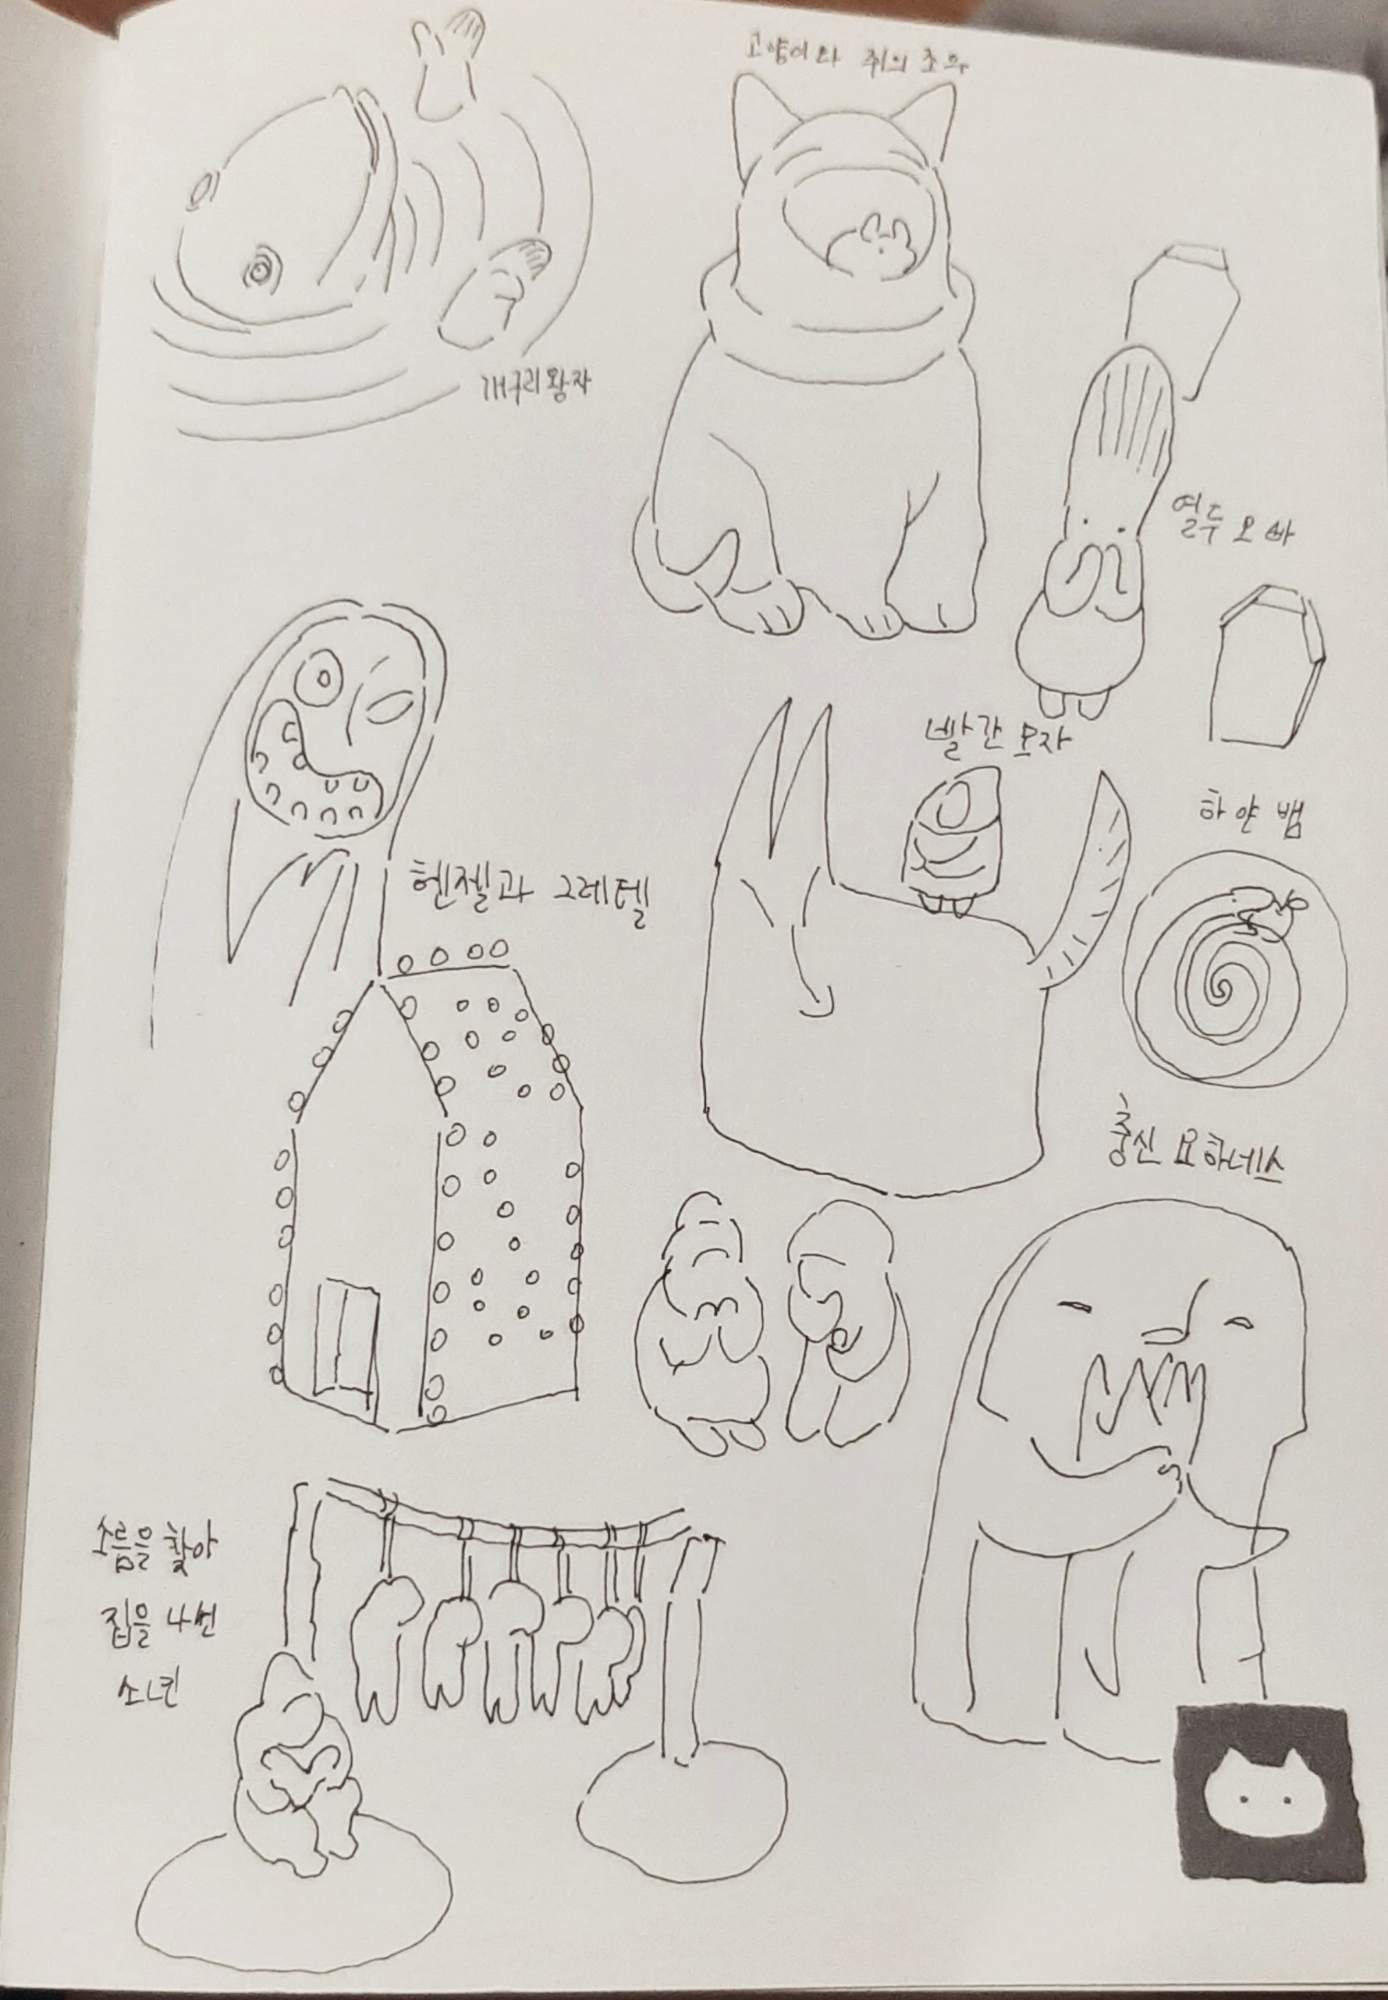 고양이와 쥐의 조우
개구리 왕자
열두 오빠
빨간 모자
하얀 뱀
헨젤과 그레텔
충신 요하네스
소름을 찾아
집을 나선
소년